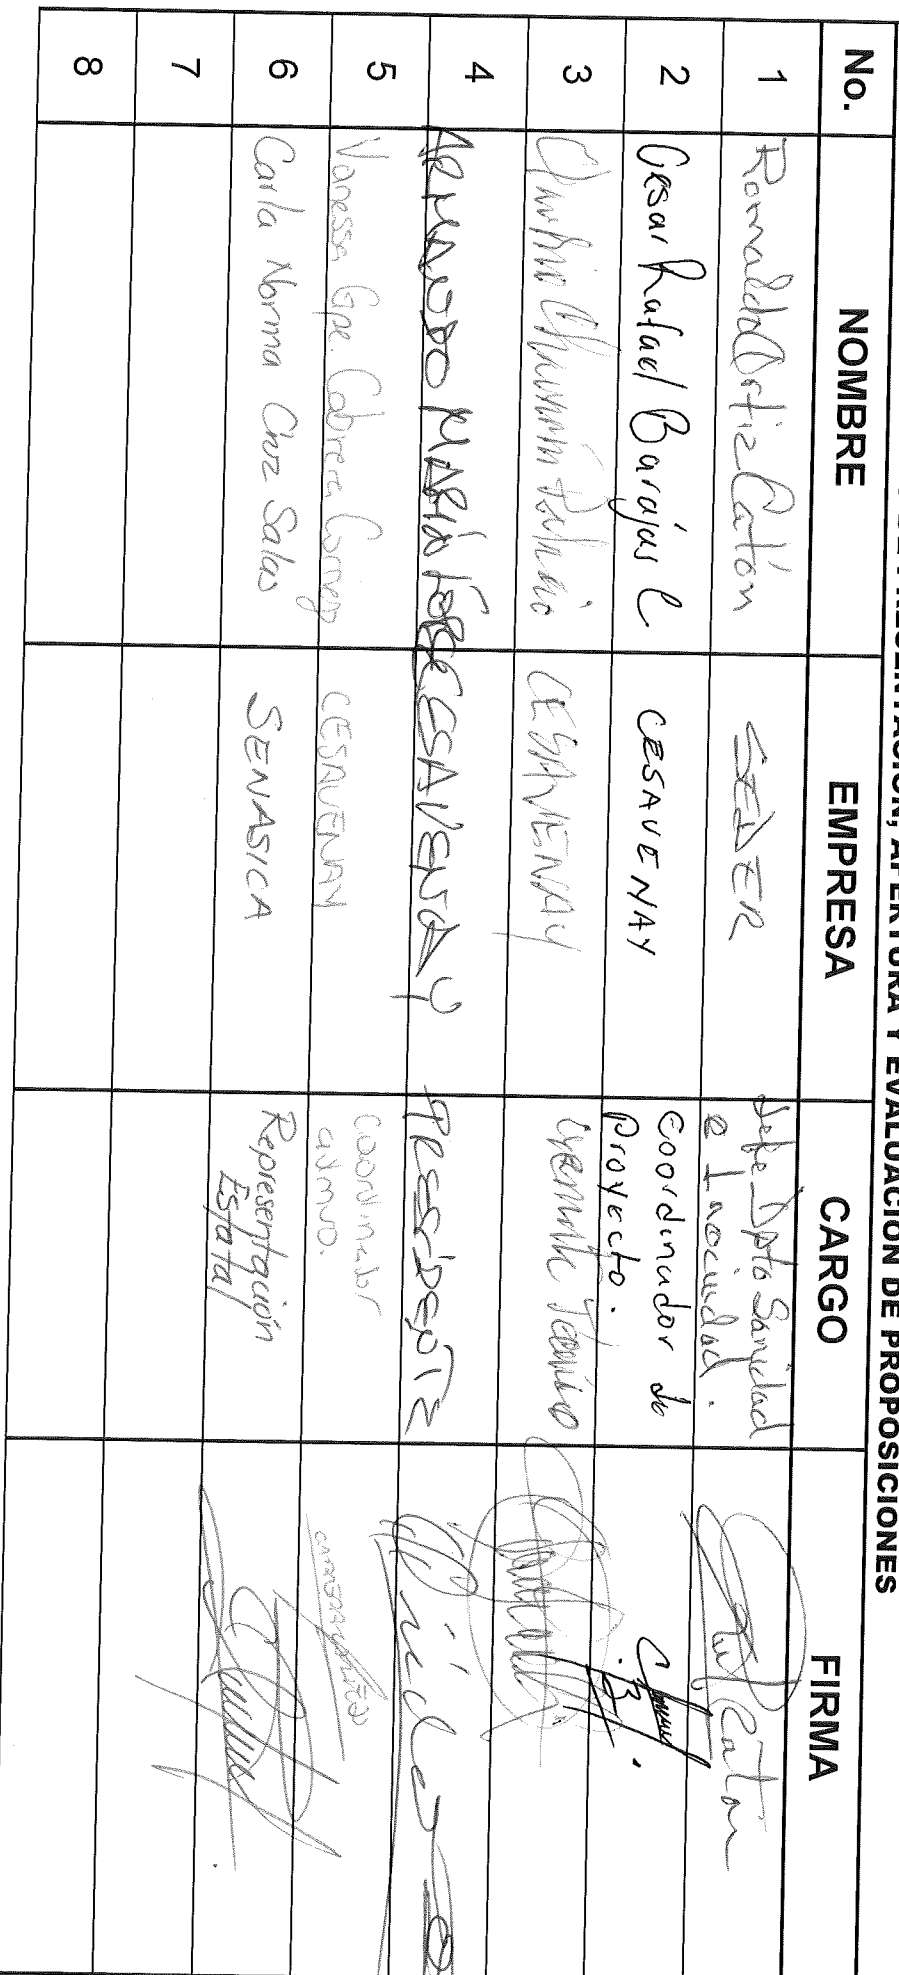 PRESENTACIÓN, APERTURA Y EVALUACIÓN DE PROPOSICIONES
No. NOMBRE EMPRESA CARGO FIRMA
1 Romaldo Ortiz Catón SEDER Jefe Dpto Sanidad
e Inocuidad.
Catón
2 Cesar Rafael Barajas C CESAVENAY Coordinador de
Proyecto.
3 CESAVENAY Gerente Técnico
4 ARMANDO MARIO CESAVENAY PRESIDENTE
5 Vanessa Gpe. Cabrera Gómez CESAVENAY Coordinador
admvo.
6 Carla Norma Cruz Salas SENASICA Representación
Estatal
7
8